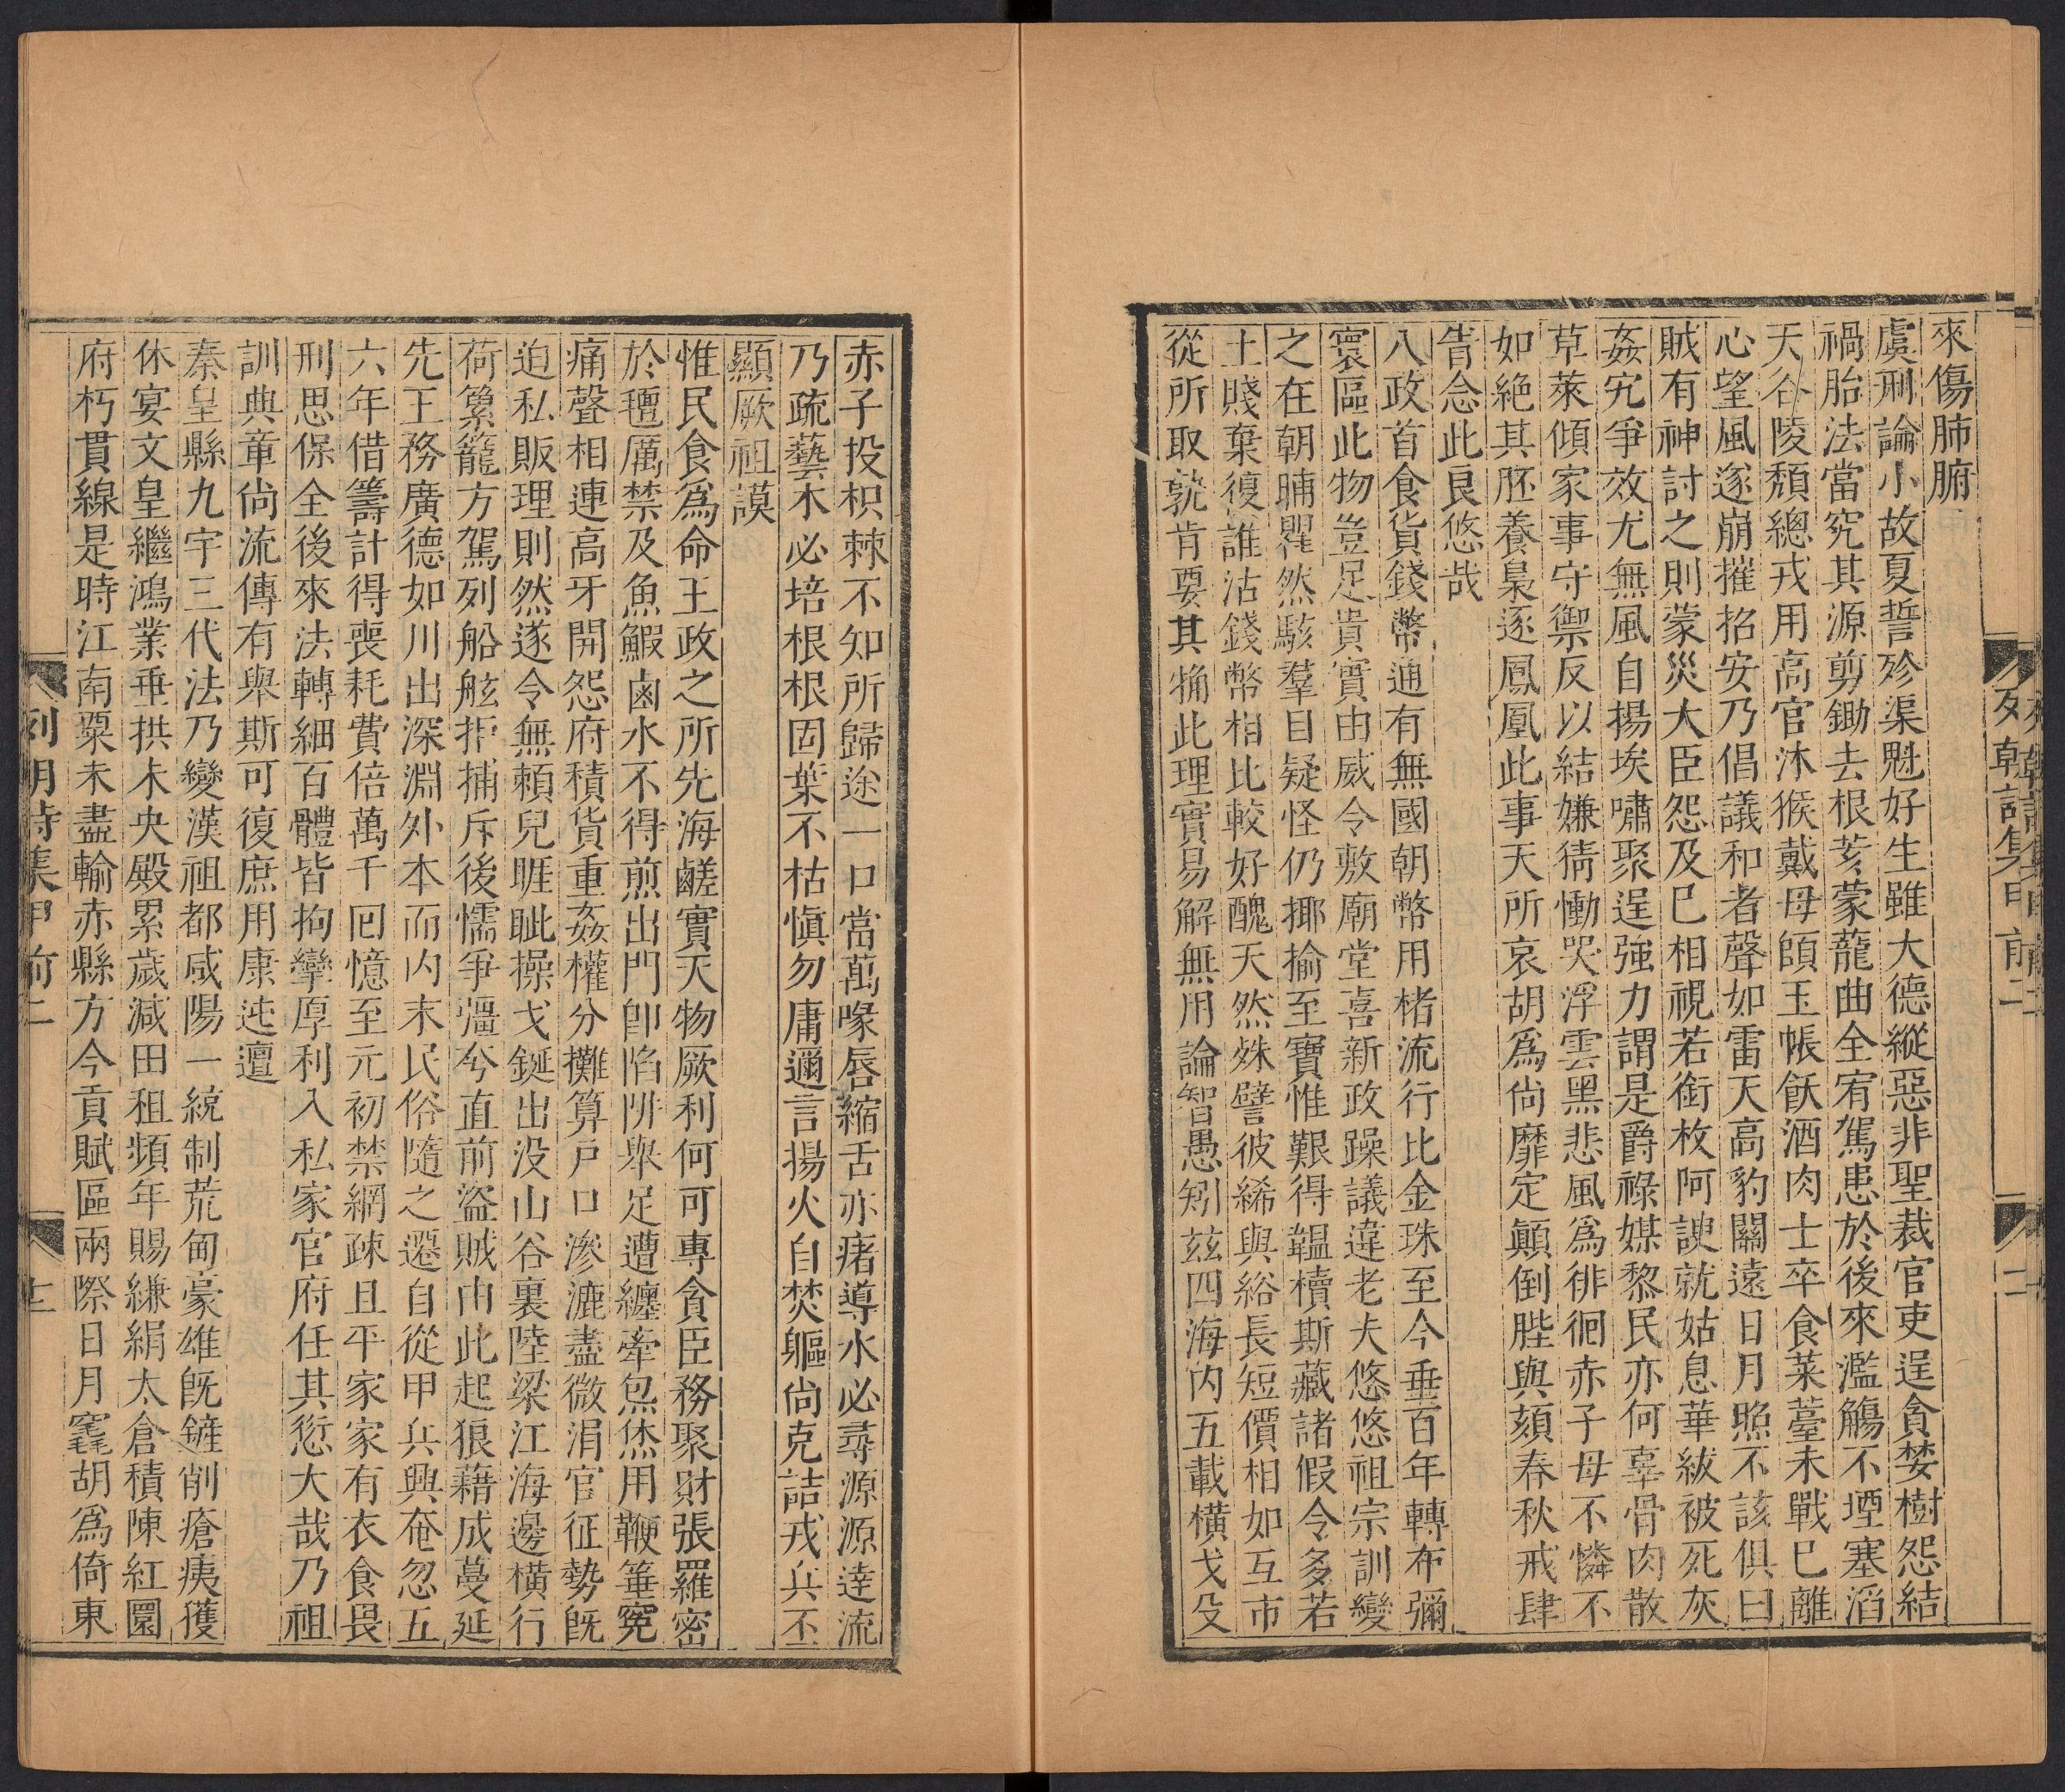 來傷肺腑
虞刑論小故夏誓殄渠魁好生雖大德縱惡非聖裁官吏逞貪婪樹怨結
禍胎法當究其源剪鋤去根荄蒙蘢曲全宥駕患於後來濫觴不堙塞滔
天谷陵頹總戎用高官沐猴戴母頧玉帳飫酒肉士卒食菜薹未戰巳離
心望風遂崩摧招安乃倡議和者聲如雷天高豹關遠日月照不該俱曰
賊有神討之則蒙災大臣怨及巳相視若銜枚阿諛就姑息華紱被死灰
姦宄爭效尤無風自揚埃嘯聚逞強力謂是爵祿媒黎民亦何辜骨肉散
草萊傾家事守禦反以結嫌猜慟哭浮雲黑悲風爲徘徊赤子母不憐不
如絕其胚養梟逐鳳凰此事天所哀胡爲尚靡定顛倒陛與頦春秋戒肆
眚念此良悠哉
八政首食貨錢幣通有無國朝幣用楮流行比金珠至今垂百年轉布彌
寰區此物豈足貴實由威令敷廟堂喜新政躁議違老夫悠悠祖宗訓變
之在朝晡瞿然駭羣目疑怪仍揶揄至寶惟艱得韞櫝斯藏諸假令多若
土賤棄復誰沽錢幣相比較好醜天然殊譬彼絺與綌長短價相如互市
從所取孰肯要其觕此理實易解無用論智愚矧茲四海內五載橫戈殳
赤子投枳棘不知所歸途一口當萬喙唇縮舌亦瘏導水必尋源源達流
乃疏藝木必培根根固葉不枯愼勿庸邇言揚火自焚軀尚克詰戎兵丕
顯厥祖謨
惟民食爲命王政之所先海鹺實天物厥利何可專貪臣務聚財張羅密
於氊厲禁及魚鰕鹵水不得煎出門卽陷阱舉足遭纏牽炰烋用鞭箠冤
痛聲相連高牙開怨府積貨重姦權分攤算戶口滲漉盡微涓官征勢旣
迫私販理則然遂令無賴兒睚眦操戈鋋出沒山谷裏陸梁江海邊橫行
荷篻籠方駕列船舷拒捕斥後懦爭彊夸直前盜賊由此起狼藉成蔓延
先王務廣德如川出深淵外本而內末民俗隨之遷自從甲兵興奄忽五
六年借籌計得喪耗費倍萬千囘憶至元初禁網疎且平家家有衣食畏
刑思保全後來法轉細百體皆拘攣厚利入私家官府任其愆大哉乃祖
訓典章尚流傳有舉斯可復庶用康迍邅
秦皇縣九宇三代法乃變漢祖都咸陽一統制荒甸豪雄旣鏟削瘡痍獲
休宴文皇繼鴻業垂拱未央殿累歲減田租頻年賜縑絹太倉積陳紅圜
府朽貫線是時江南粟未盡輸赤縣方今貢賦區兩際日月窟胡爲倚東
列朝詩集甲前二